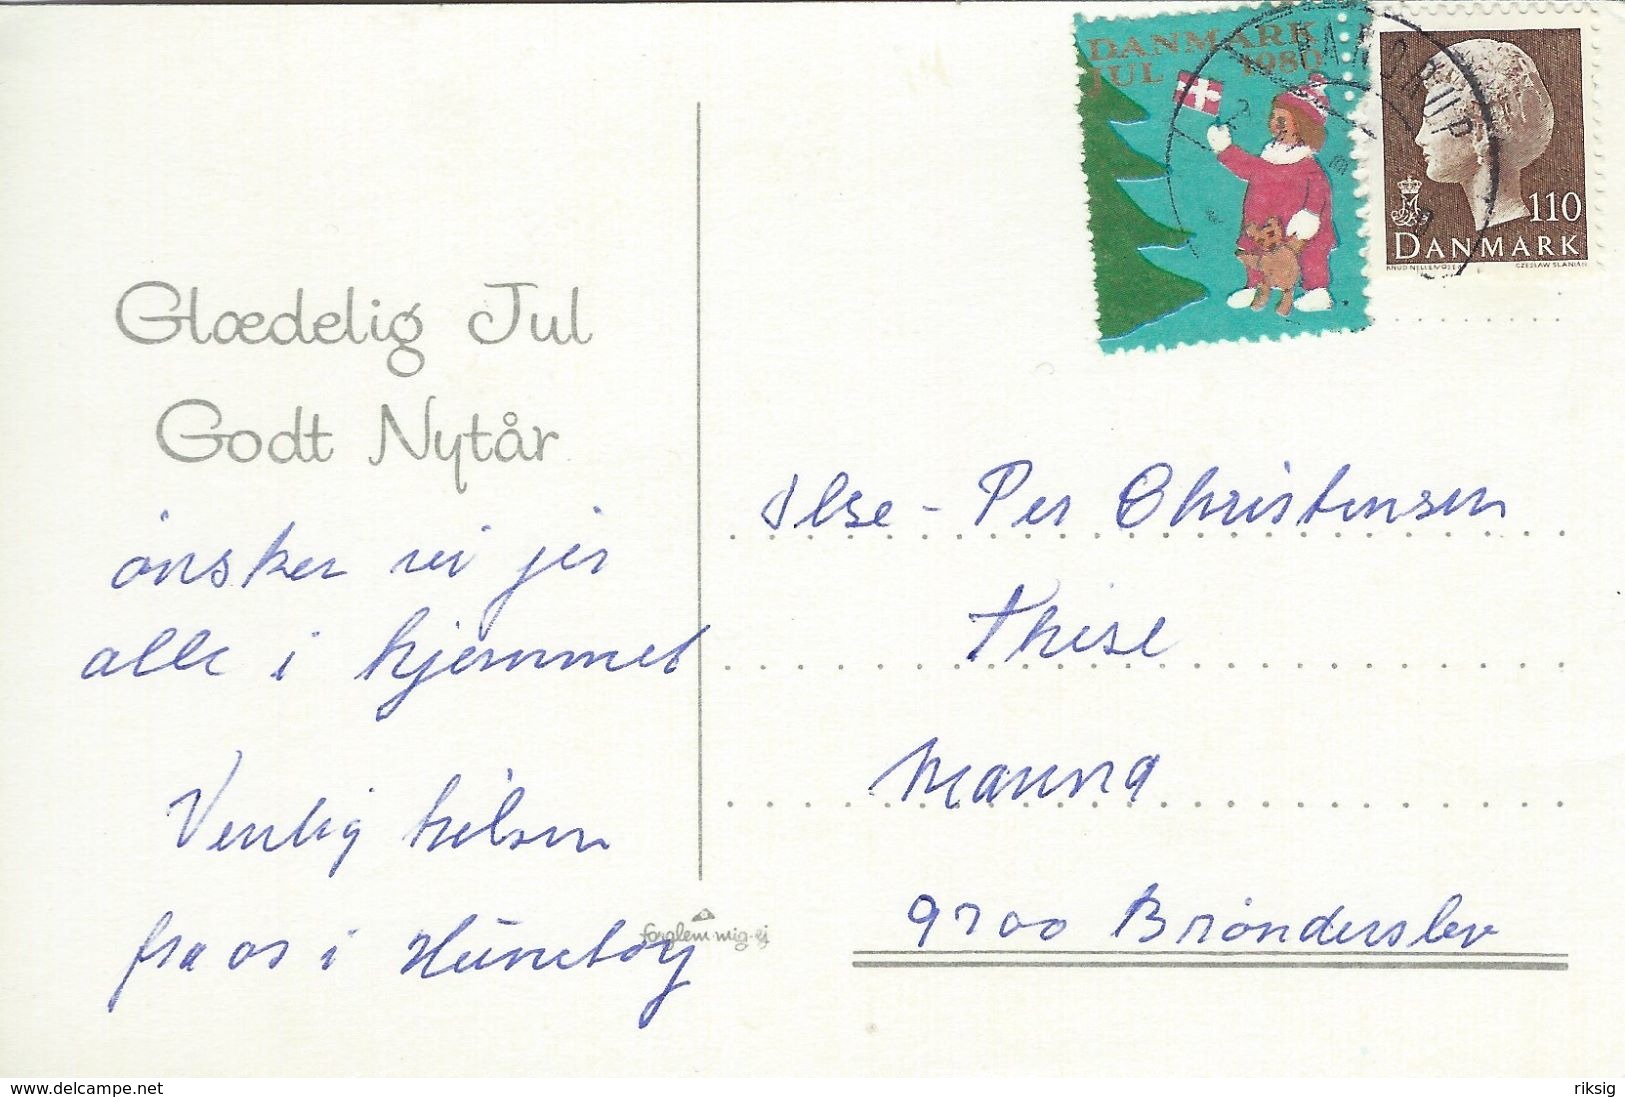 DANMARK
JUL 1980
110
DANMARK
KNUD NIELLEMOSE CZESLAW SLANIA
Glædelig Jul
Godt Nytår
ønsker vi jer
alle i hjemmet
Venlig hilsen
fra os i
forglem-mig-ej
Ilse - Per Christensen
Thise
Manna
9700 Brønderslev
www.delcampe.net
riksig